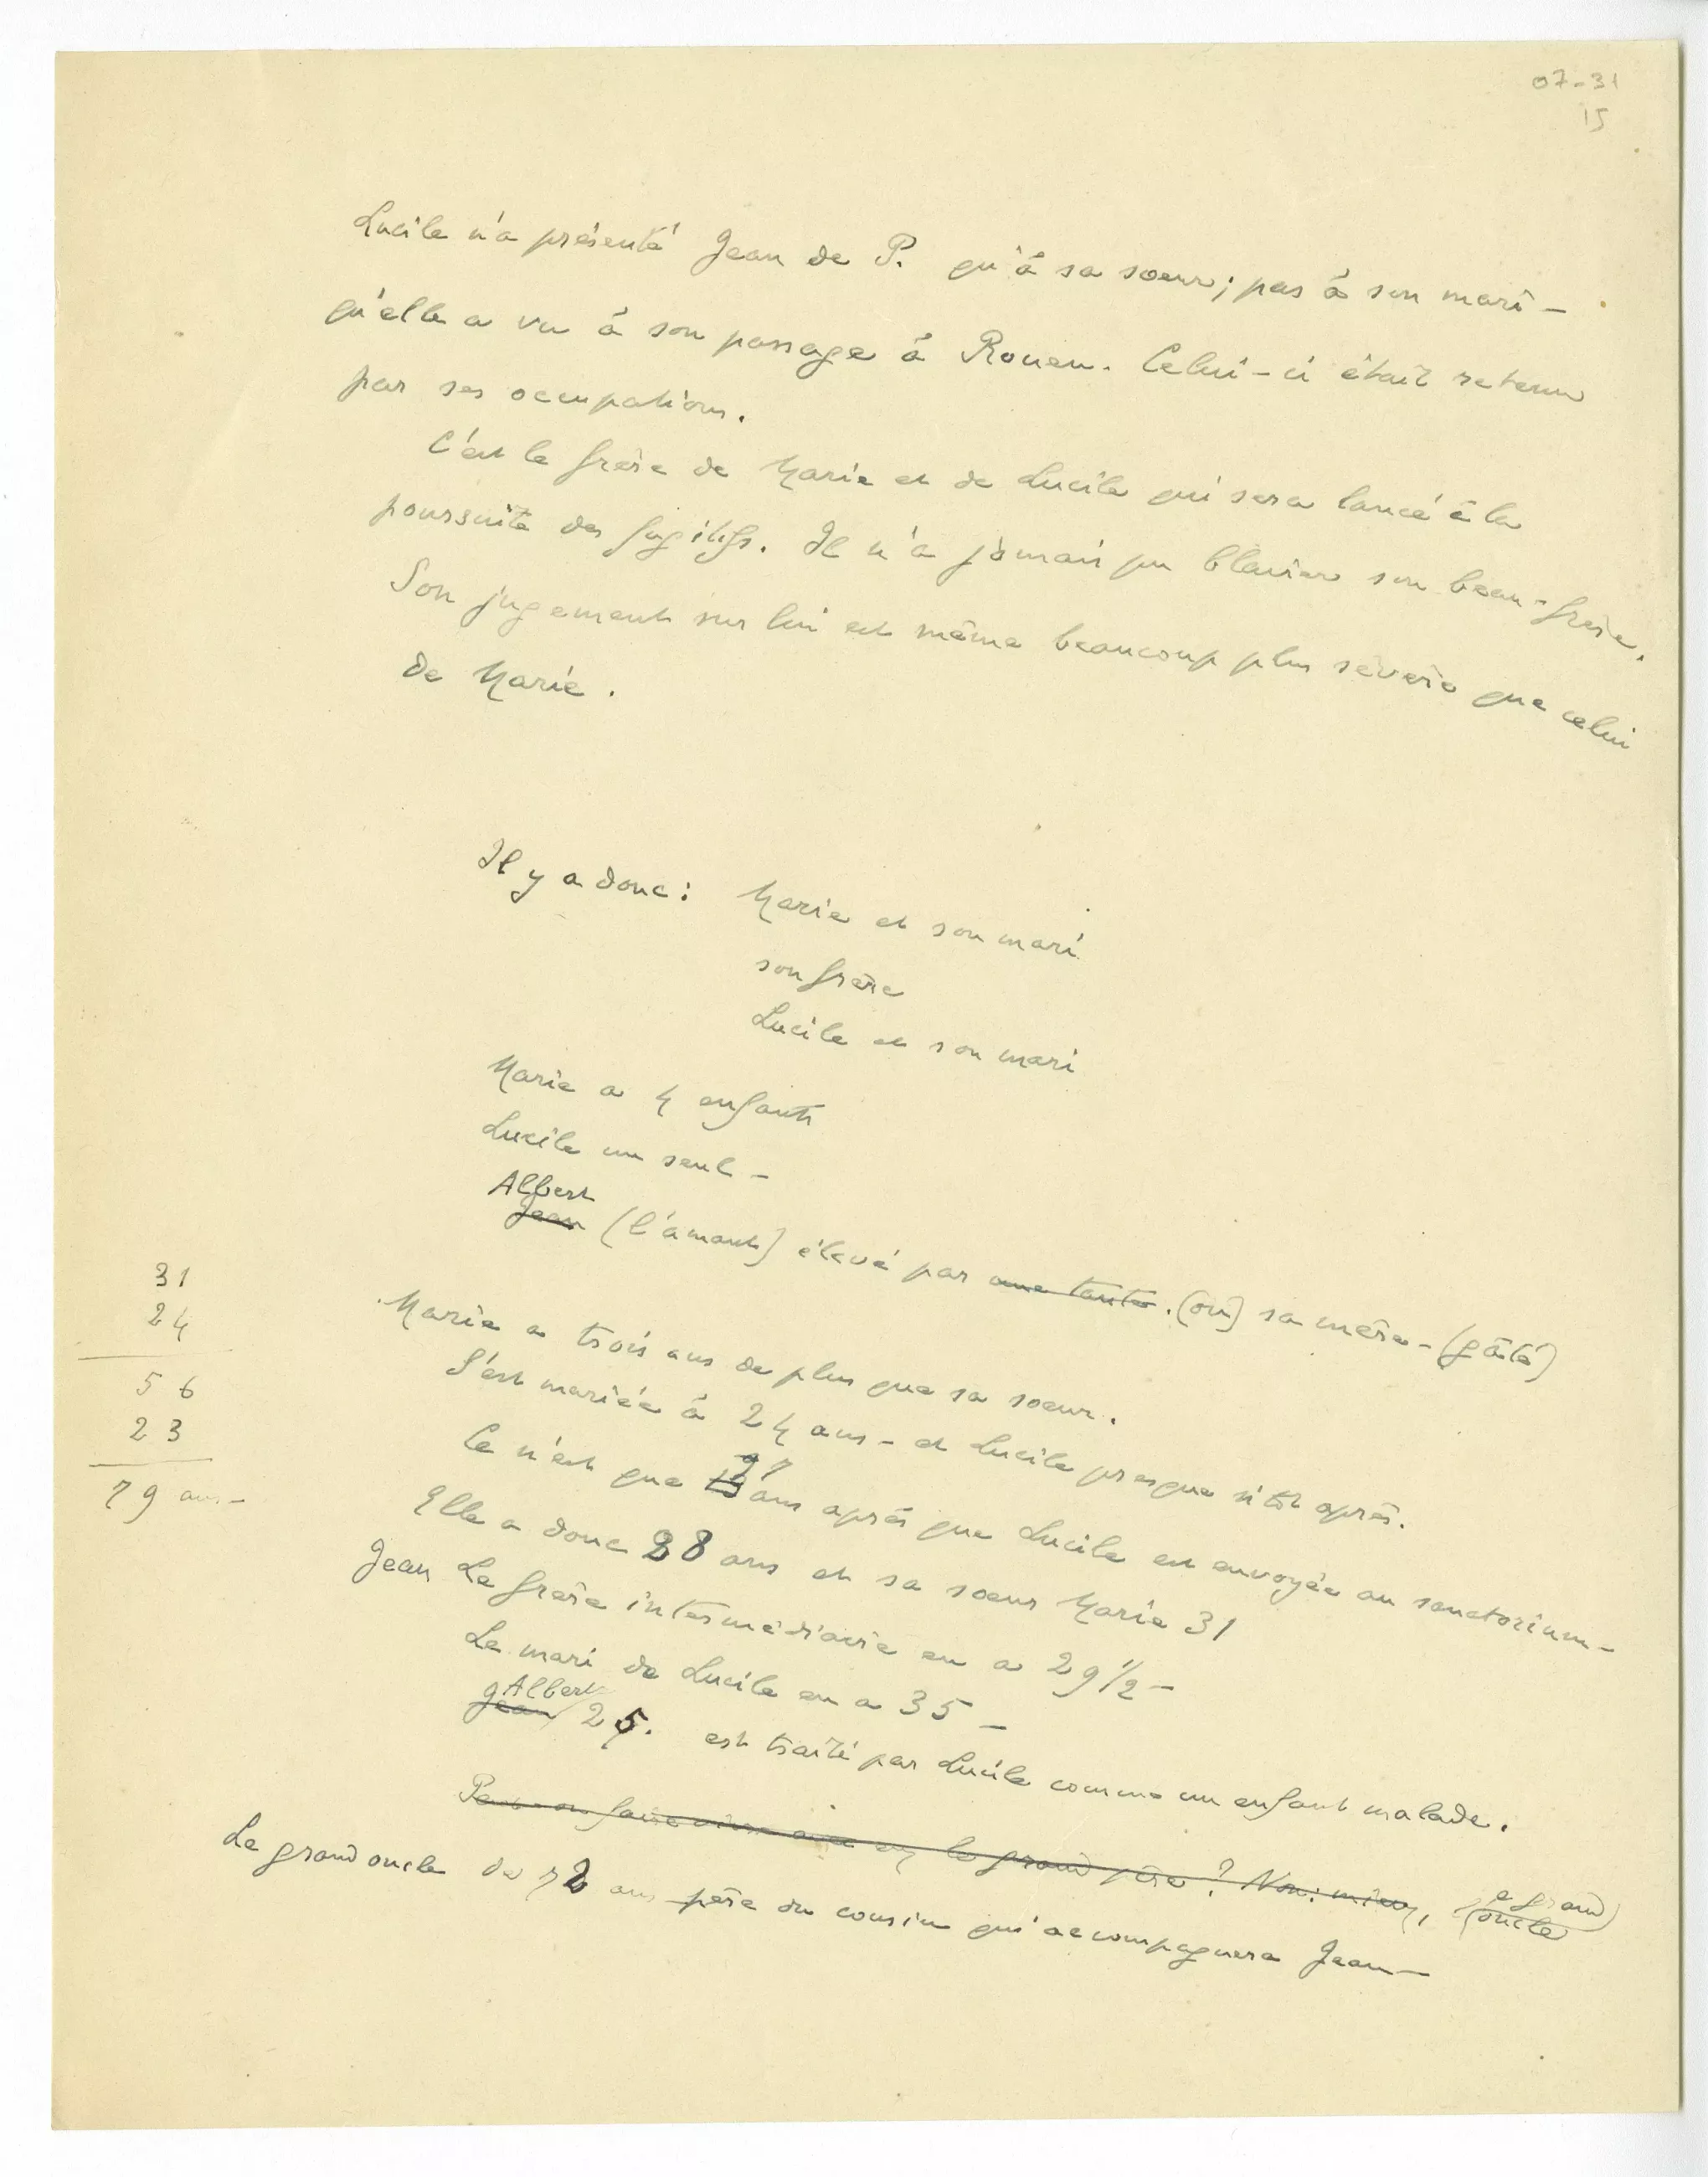 07-31
15
Lucile n'a présenté Jean de P. qu'à sa sœur; pas à son mari -
qu'elle a vu à son passage à Rouen. Celui-ci était retenu
par ses occupations.
C'est le frère de Marie et de Lucile qui sera lancé à la
poursuite des fugitifs. Il n'a jamais pu blairer son beau-frère.
Son jugement sur lui est même beaucoup plus sévère que celui
de Marie.
Il y a donc : Marie et son mari
son frère
Lucile et son mari
Marie a 4 enfants
Lucile un seul -
Albert
Jean (l'amant) élevé par une tante. (ou) sa mère - (gâté)
Marie a trois ans de plus que sa sœur.
S'est mariée à 24 ans - et Lucile presque sitôt après.
Ce n'est que ans après que Lucile est envoyée au sanatorium -
Elle a donc 28 ans et sa sœur Marie 31
Jean Le frère intermédiaire en a 29 1/2 -
Le mari de Lucile en a 35 -
Albert
Jean 25. est traité par Lucile comme un enfant malade.
Peut-on faire vivre avec eux le grand père ? Non: mieux, le grand
oncle
Le grand oncle de 72 ans père du cousin qui accompagnera Jean -
31
24
56
23
79 ans -